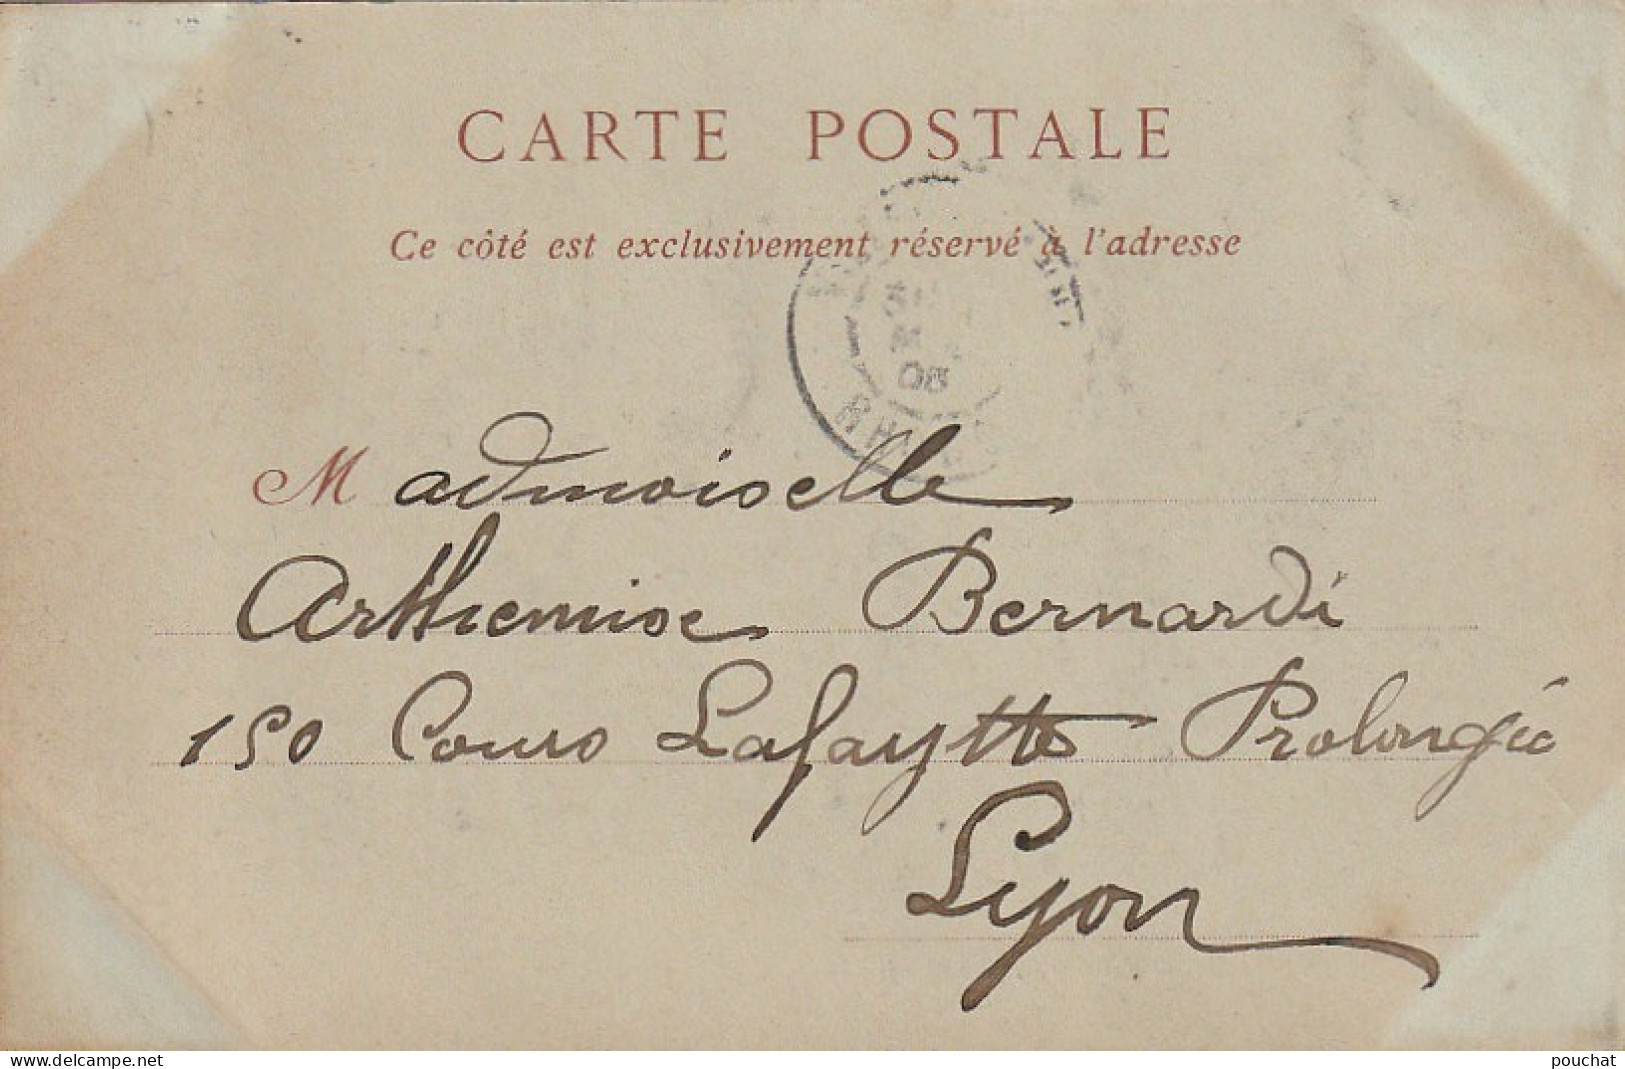 CARTE POSTALE
Ce côté est exclusivement réservé à l'adresse
06
RH
Madmoiselle
Arthemise Bernardi
150 Cours Lafaytte Prolongée
Lyon
delcampe.net
pouchat